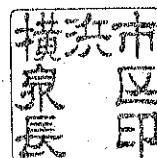 横浜市
泉区
長印